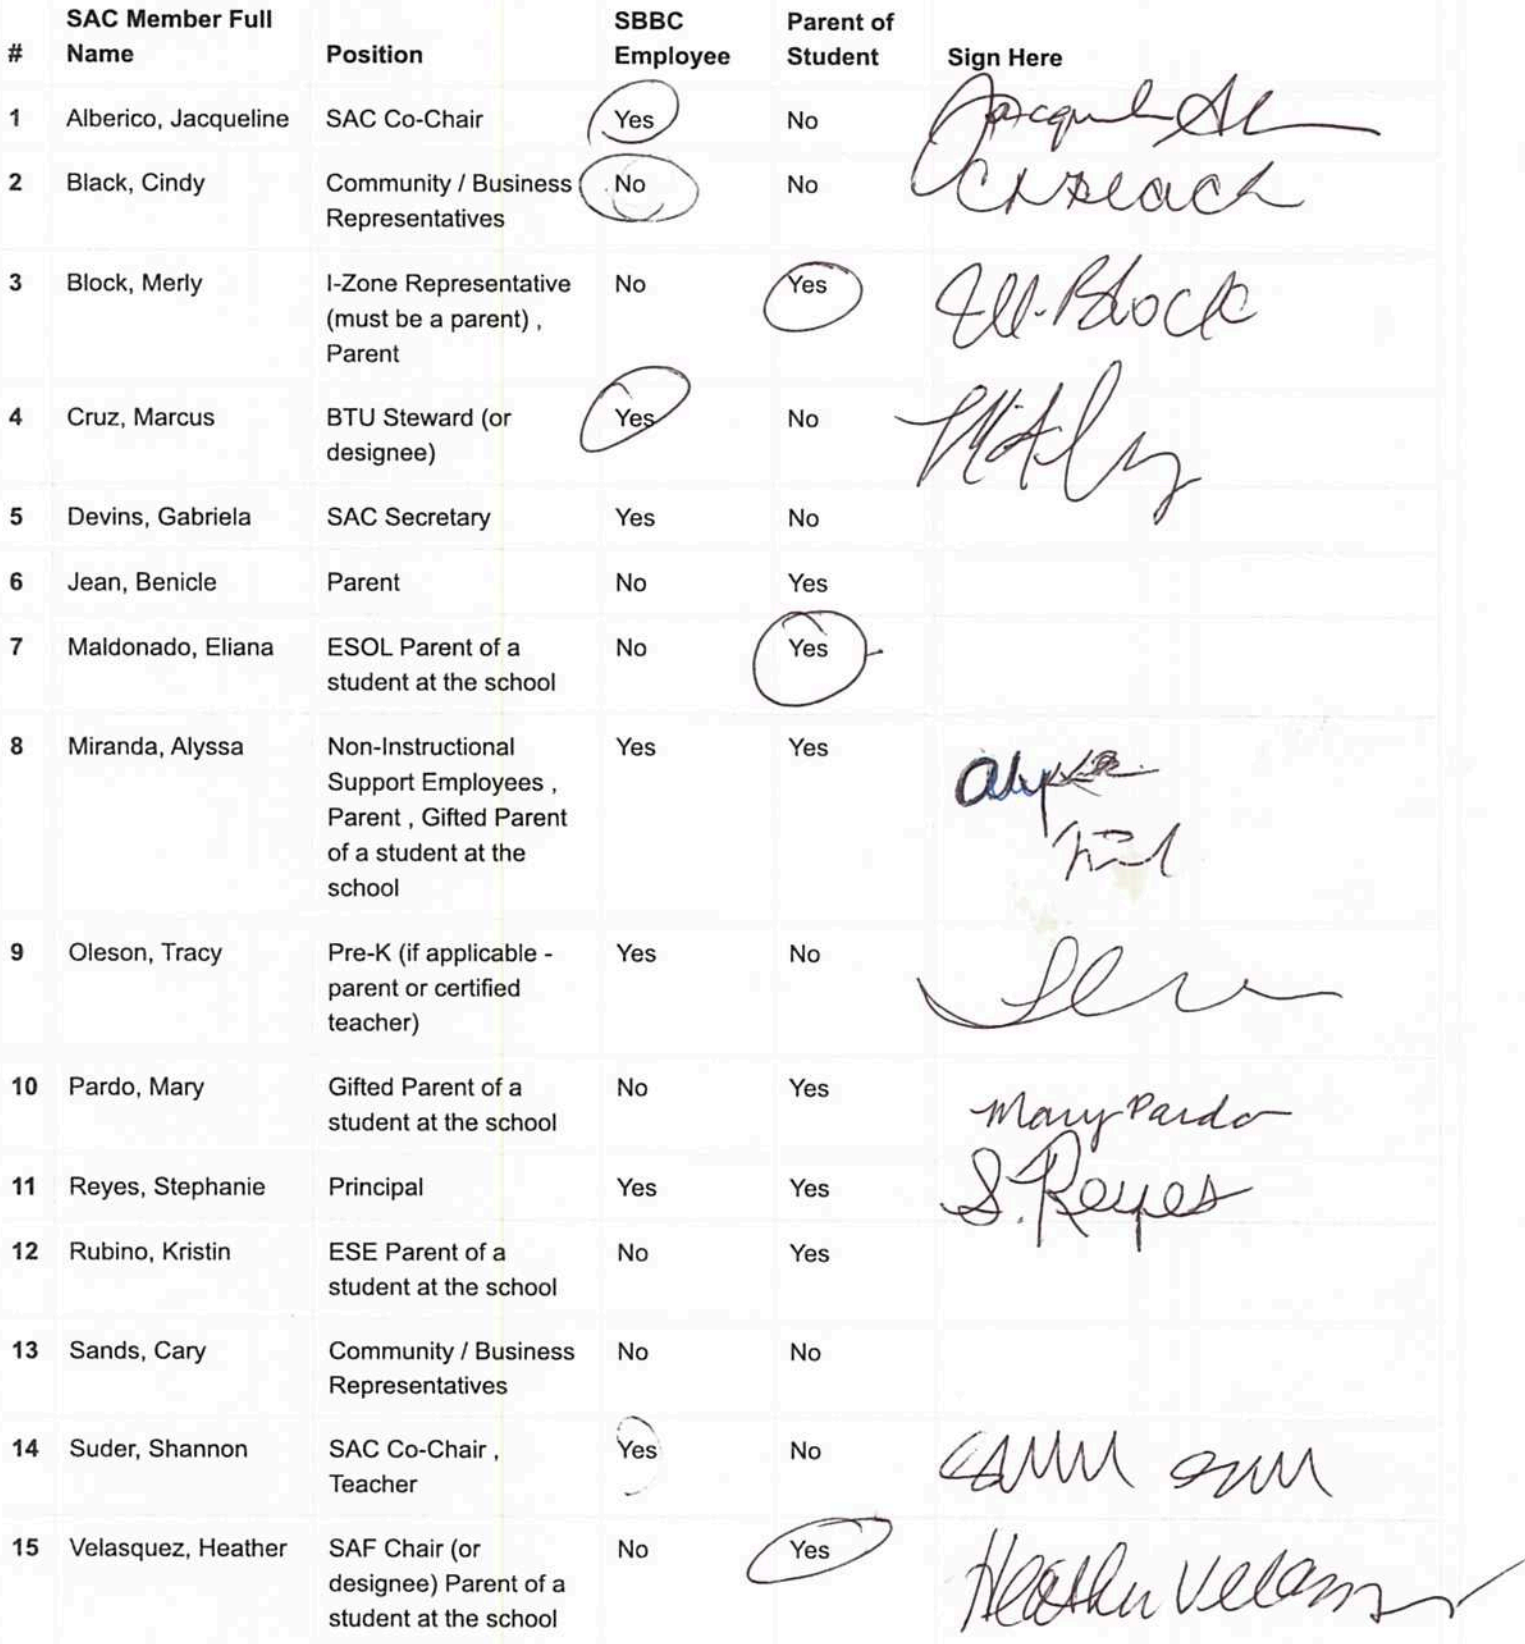 # SAC Member Full Name Position SBBC Employee Parent of Student Sign Here
1 Alberico, Jacqueline SAC Co-Chair Yes No
2 Black, Cindy Community / Business Representatives No No
3 Block, Merly I-Zone Representative (must be a parent) , Parent No Yes M. Block
4 Cruz, Marcus BTU Steward (or designee) Yes No
5 Devins, Gabriela SAC Secretary Yes No
6 Jean, Benicle Parent No Yes
7 Maldonado, Eliana ESOL Parent of a student at the school No Yes
8 Miranda, Alyssa Non-Instructional Support Employees , Parent , Gifted Parent of a student at the school Yes Yes
9 Oleson, Tracy Pre-K (if applicable - parent or certified teacher) Yes No
10 Pardo, Mary Gifted Parent of a student at the school No Yes Mary Pardo
11 Reyes, Stephanie Principal Yes Yes S. Reyes
12 Rubino, Kristin ESE Parent of a student at the school No Yes
13 Sands, Cary Community / Business Representatives No No
14 Suder, Shannon SAC Co-Chair , Teacher Yes No
15 Velasquez, Heather SAF Chair (or designee) Parent of a student at the school No Yes Heather